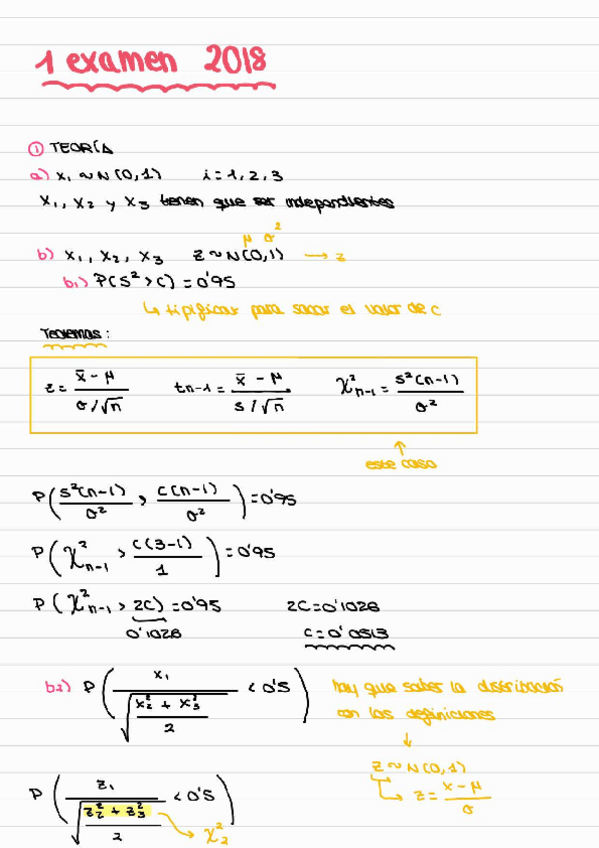 1 examen 2018
① TEORÍA
a) X₁ ~ N(0,1) i = 1, 2, 3
X₁, X₂ y X₃ tienen que ser independientes
μ σ²
b) X₁, X₂, X₃ Z ~ N(0,1) → Z
b₁) P(S² > C) = 0'95
↳ tipificar para sacar el valor de c
Teoremas:
Z = (x̄ - μ) / (σ/√n) tn-1 = (x̄ - μ) / (s/√n) χ²n-1 = S²(n-1) / σ²
↑
este caso
P( S²(n-1) / σ² > C(n-1) / σ² ) = 0'95
P( χ²n-1 > C(3-1) / 1 ) = 0'95
P( χ²n-1 > 2C) = 0'95 2C = 0'1026
0'1026 C = 0'0513
b2) P( X₁ / √((X₂² + X₃²) / 2) < 0'5 ) hay que saber la distribución
con las definiciones
↓
Z ~ N(0,1)
↳ Z = (X - μ) / σ
P( Z₁ / √((Z₂² + Z₃²) / 2) < 0'5 )
→ χ²₂